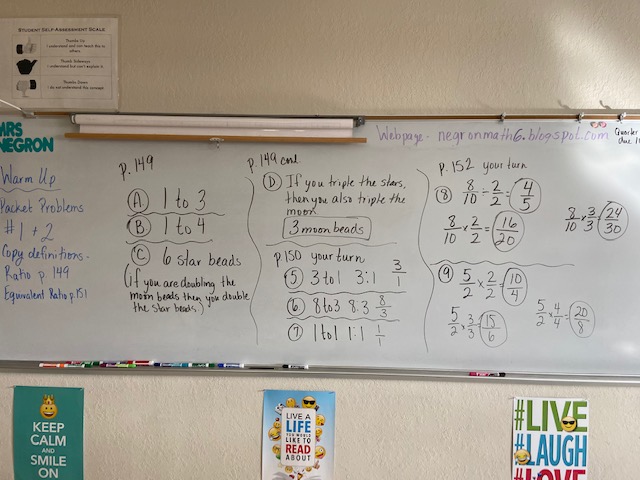 STUDENT SELF ASSESSMENT SCALE
Thumbs Up
I understand and can teach this to others.
Thumb Sideways
I understand but can't explain it.
Thumbs Down
I do not understand this concept.
MRS
NEGRON
Webpage - negronmath6.blogspot.com
Quarter
Due
Warm Up
Packet Problems
#1 + 2
Copy definitions -
Ratio p 149
Equivalent Ratio p.151
p. 149
A 1 to 3
B 1 to 4
C 6 star beads
(if you are doubling the
moon beads then you double
the star beads.)
p. 149 cont
D If you triple the stars,
then you also triple the
moon
3 moon beads
p.150 your turn
5 3 to 1 3:1 3/1
6 8 to 3 8:3 8/3
7 1 to 1 1:1 1/1
p. 152 your turn
8 8/10 ÷ 2/2 = 4/5
8/10 × 2/2 = 16/20
8/10 × 3/3 = 24/30
9 5/2 × 2/2 = 10/4
5/2 × 3/3 = 15/6
5/2 × 4/4 = 20/8
KEEP
CALM
AND
SMILE
ON
LIVE A
LIFE
YOU WOULD
LIKE TO
READ
ABOUT
#LIVE
#LAUGH
#LOVE